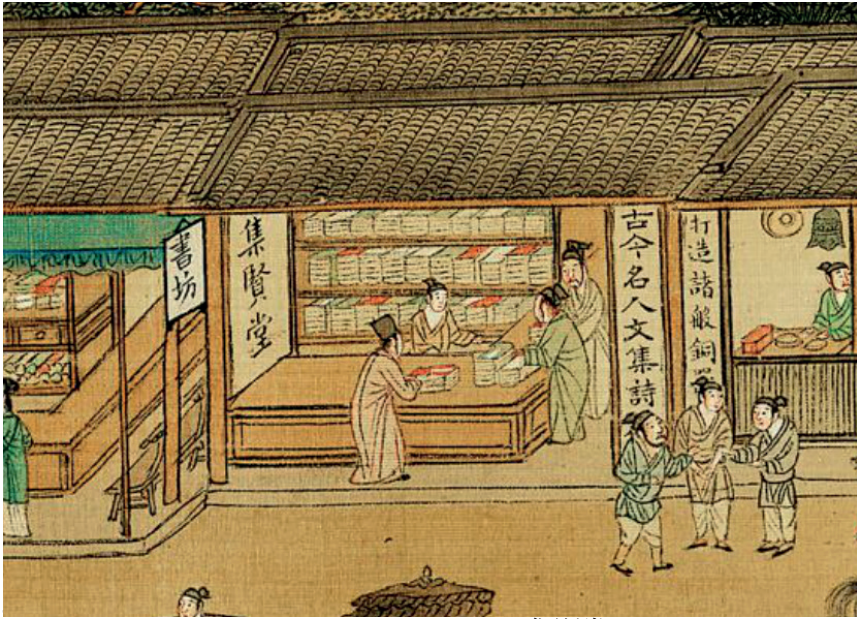 書坊
集賢堂
古今名人文集詩
打造諸般銅